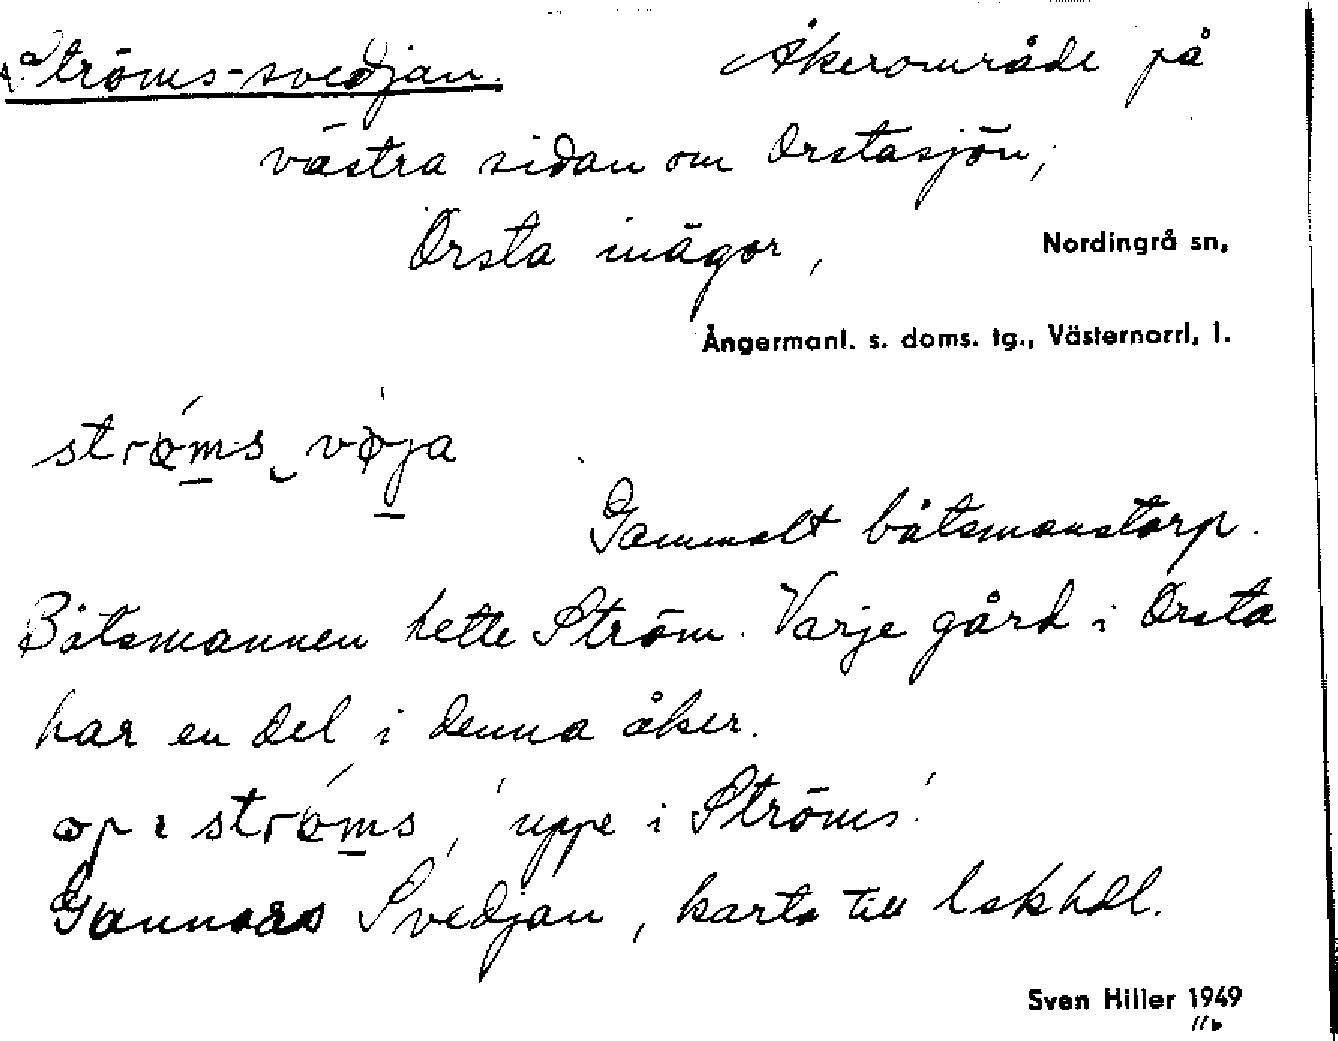 Ströms-svedjan. Åkerområde på
västra sidan om Orstasjön,
Orsta inägor, Nordingrå sn,
Ångermanl. s. doms. tg., Västernorrl. l.
Gammalt båtsmanstorp.
Båtsmannen hette Ström. Varje gård i Orsta
har en del i denna åker.
'uppe i Ströms'.
Svedjan, karta till lskhdl.
Sven Hiller 1949